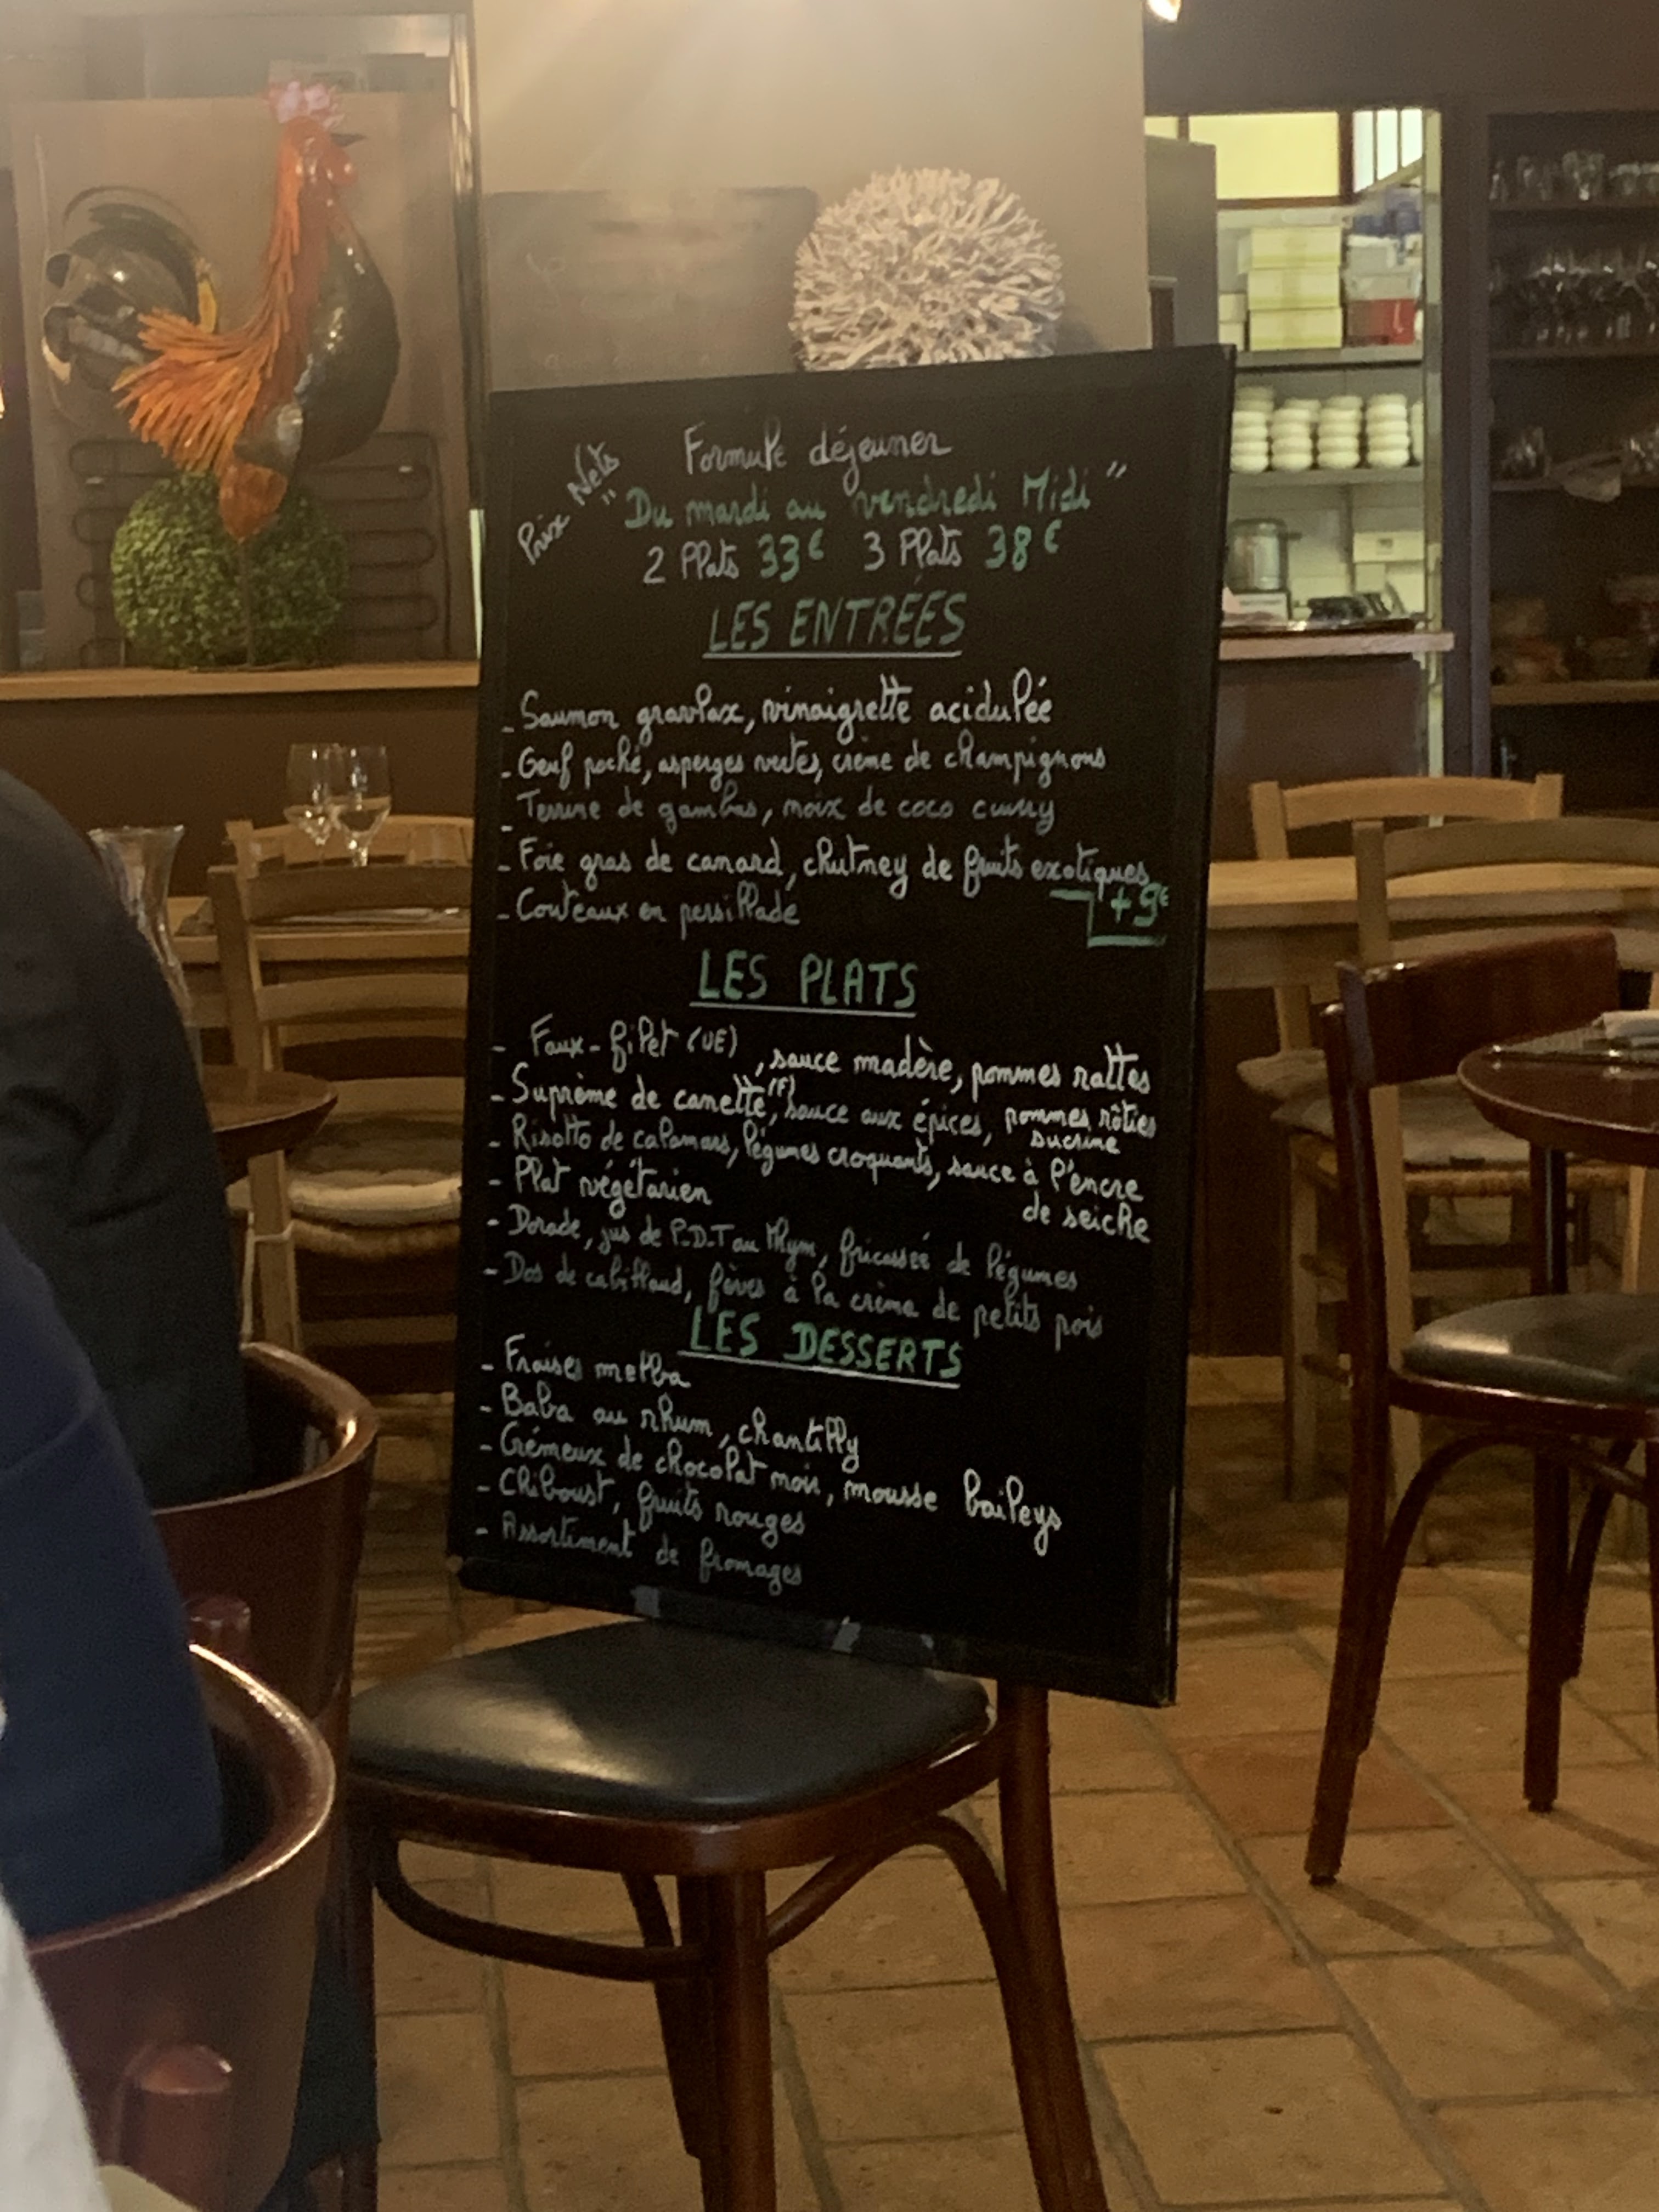 Prix Nets
Formule déjeuner
" Du mardi au vendredi Midi "
2 Plats 33€ 3 Plats 38€
LES ENTRÉES
- Saumon gravlax, vinaigrette acidulée
- Oeuf poché, asperges vertes, crème de champignons
- Terrine de gambas, noix de coco curry
- Foie gras de canard, chutney de fruits exotiques
+9€
- Couteaux en persillade
LES PLATS
- Faux-filet (UE), sauce madère, pommes rattes
- Suprême de canette (F), sauce aux épices, pommes rôties
sucrine
- Risotto de calamars, légumes croquants, sauce à l'encre
de seiche
- Plat végétarien
- Dorade, jus de P-D-T au thym, fricassée de légumes
- Dos de cabillaud, fèves à la crème de petits pois
LES DESSERTS
- Fraises melba
- Baba au rhum, chantilly
- Crémeux de chocolat noir, mousse baileys
- Chiboust, fruits rouges
- Assortiment de fromages